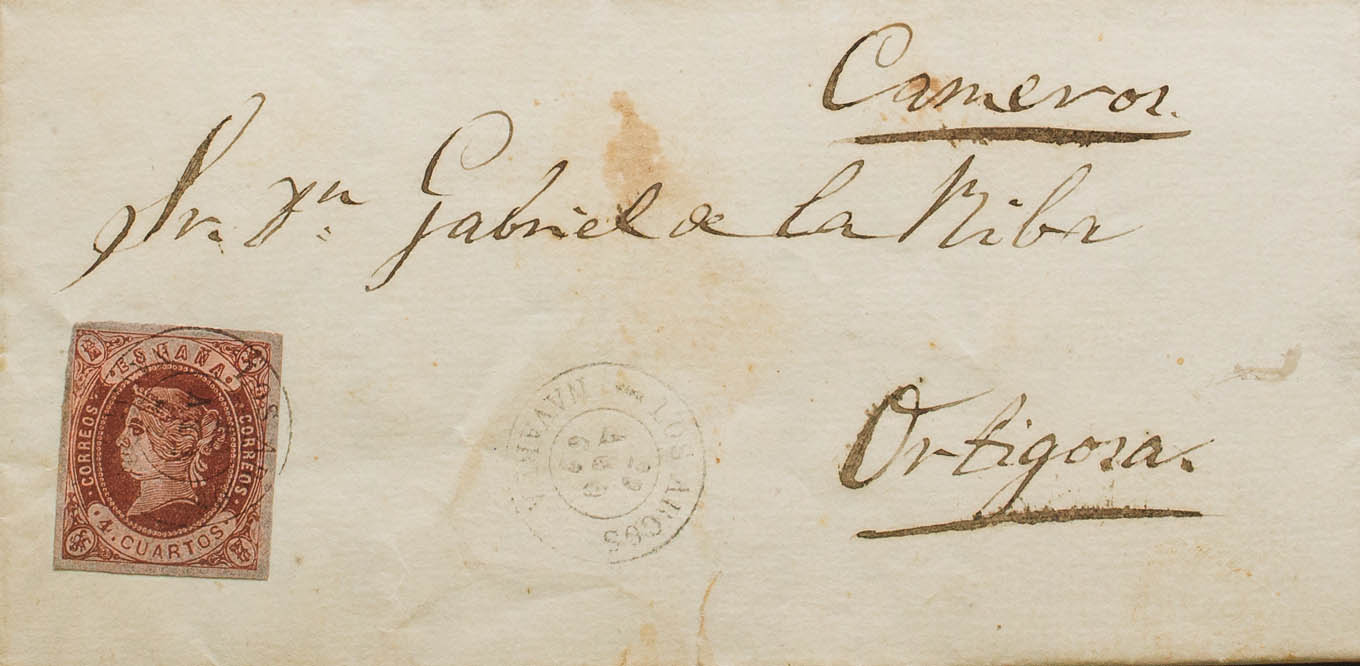 Cameros.
Sr. Dn. Gabriel de la Riba
ESPAÑA
CORREOS
CORREOS
4. CUARTOS
LOS ARCOS
NAVARRA
Ortigosa.